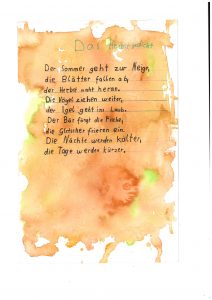 Das Herbstgedicht
Der Sommer geht zur Neige,
die Blätter fallen ab,
der Herbst naht heran.
Die Vögel ziehen weiter,
der Igel geht ins Laub.
Der Bär fängt die Fische,
die Gletscher frieren ein.
Die Nächte werden kälter,
die Tage werden kürzer.